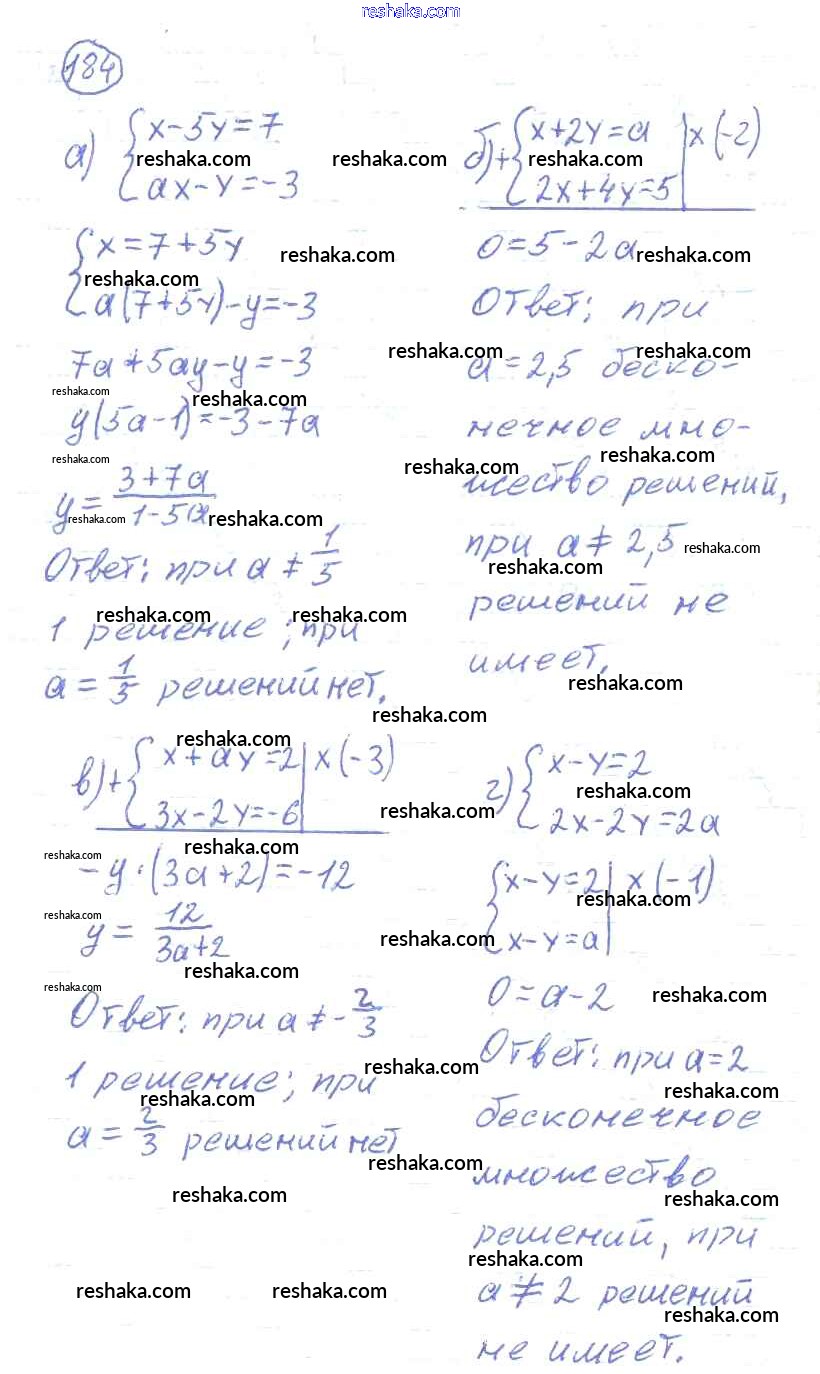 reshaka.com
184
а) { x-5y=7
reshaka.com
ax-y=-3
{ x=7+5y
reshaka.com
reshaka.com
a(7+5y)-y=-3
7a+5ay-y=-3
reshaka.com
reshaka.com
reshaka.com
y(5a-1)=-3-7a
reshaka.com
reshaka.com
y= 3+7a / 1-5a
reshaka.com
reshaka.com
Ответ: при a ≠ 1/5
reshaka.com
reshaka.com
1 решение; при
a = 1/5 решений нет.
reshaka.com
б)+ { x+2y=a | x (-2)
reshaka.com
reshaka.com
2x+4y=5
0=5-2a
reshaka.com
Ответ: при
reshaka.com
a=2,5 беско-
нечное мно-
reshaka.com
жество решений,
при a≠2,5
reshaka.com
reshaka.com
решений не
имеет.
reshaka.com
в)+ { x+ay=2 | x (-3)
reshaka.com
3x-2y=-6
reshaka.com
reshaka.com
reshaka.com
-y·(3a+2)=-12
reshaka.com
y= 12 / 3a+2
reshaka.com
reshaka.com
reshaka.com
Ответ: при a ≠ - 2/3
reshaka.com
1 решение; при
reshaka.com
a = 2/3 решений нет
reshaka.com
reshaka.com
reshaka.com
reshaka.com
г) { x-y=2
reshaka.com
2x-2y=2a
{ x-y=2 | x (-1)
reshaka.com
x-y=a
0=a-2
reshaka.com
Ответ: при a=2
reshaka.com
бесконечное
множество
reshaka.com
решений, при
reshaka.com
a≠2 решений
reshaka.com
не имеет.